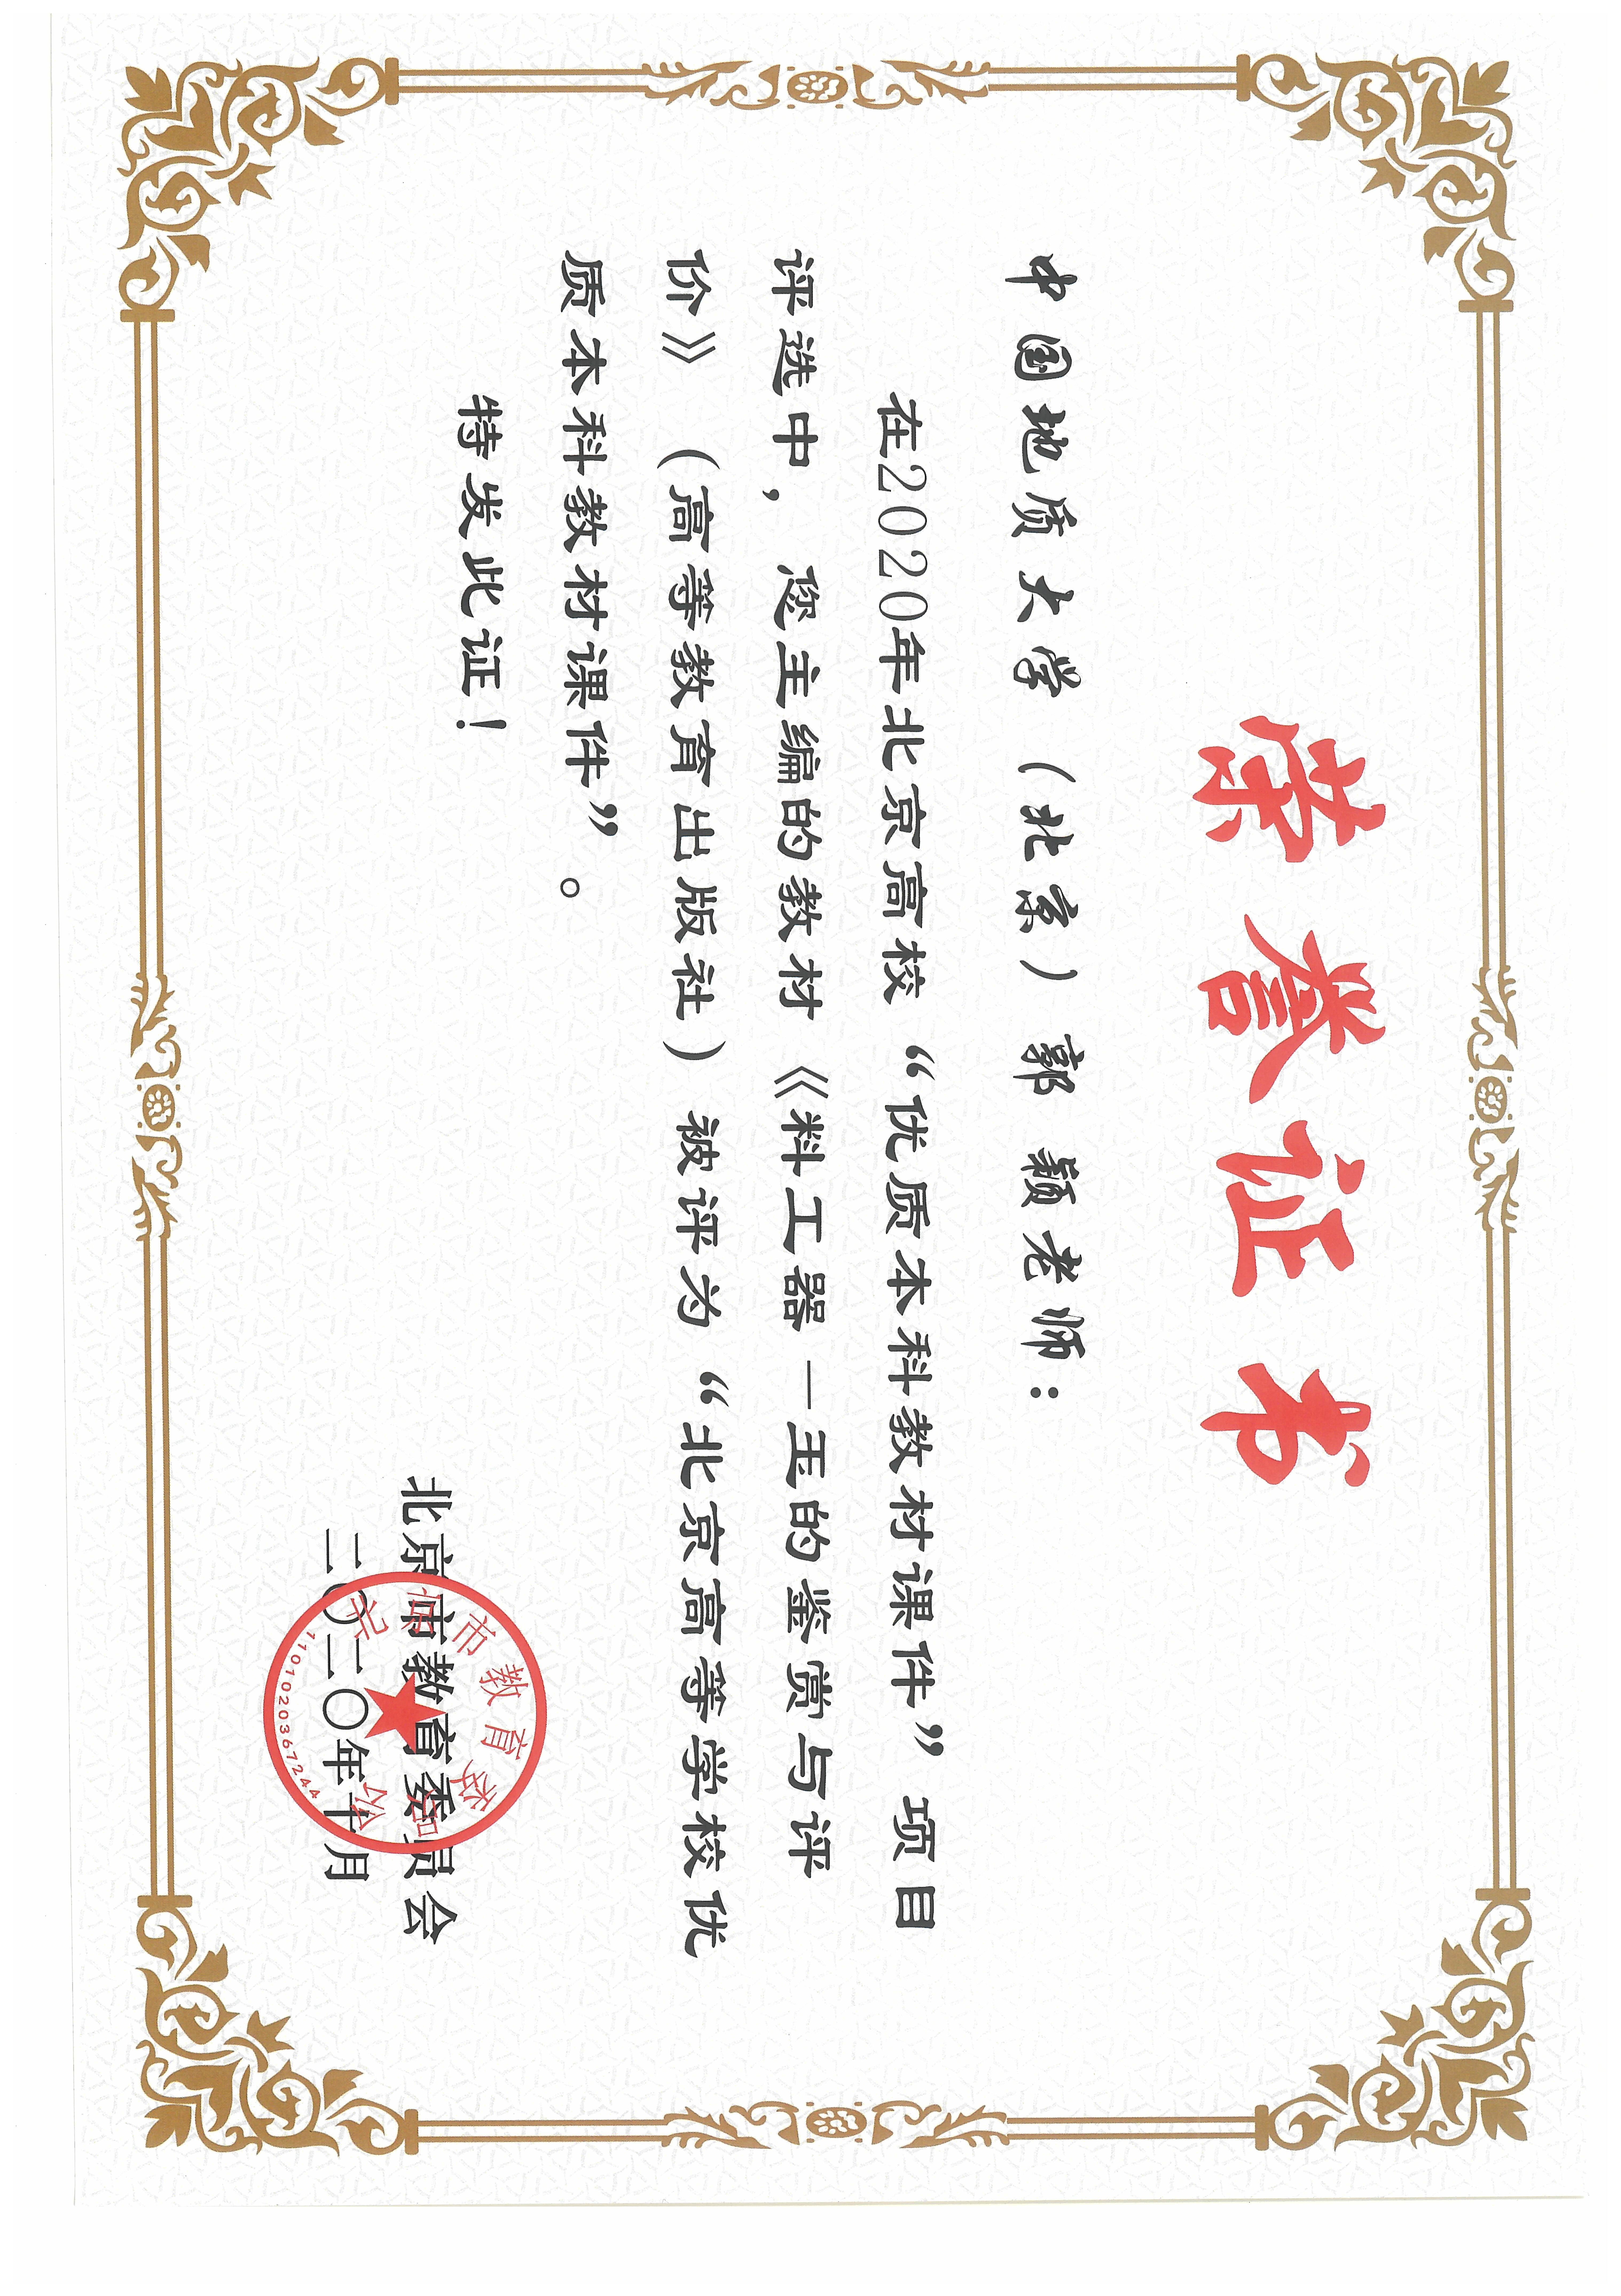 荣誉证书
中国地质大学（北京）郭 颖老师：
在2020年北京高校“优质本科教材课件”项目
评选中，您主编的教材《料工器—玉的鉴赏与评
价》（高等教育出版社）被评为“北京高等学校优
质本科教材课件”。
特发此证！
北京市教育委员会
二〇二〇年十月
北京市教育委员会
1101020367244